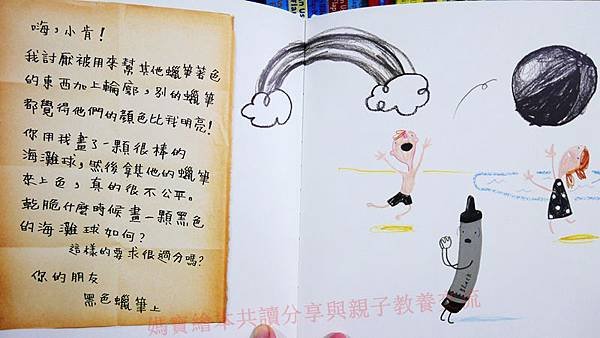 嗨，小肯！
我討厭被用來幫其他蠟筆著色
的東西加上輪廓，別的蠟筆
都覺得他們的顏色比我明亮！
你用我畫了一顆很棒的
海灘球，然後拿其他的蠟筆
來上色，真的很不公平。
乾脆什麼時候畫一顆黑色
的海灘球如何？
這樣的要求很過分嗎？
你的朋友
黑色蠟筆上
black
媽寶繪本共讀分享與親子教養交流